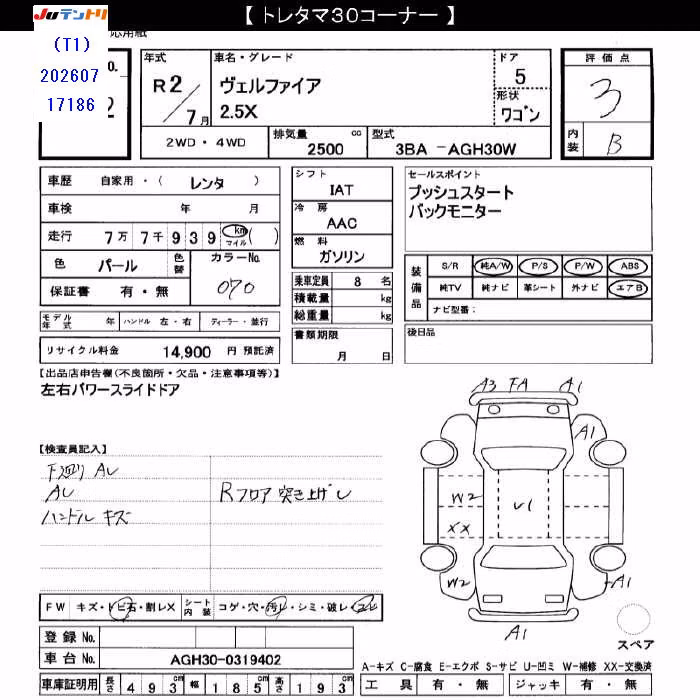 【 トレタマ30コーナー 】
JUテントリ
応用紙
(T1)
202607
17186
o.
2
年式
R2/7月
車名・グレード
ヴェルファイア
2.5X
ドア
5
形状
ワゴン
評価点
3
内装
B
2WD・4WD
排気量
2500
cc
型式
3BA -AGH30W
車歴 自家用・( レンタ )
車検 年 月
走行 7万 7千 9 3 9 km マイル ( )
色 パール 色替 カラーNo.
保証書 有・無 070
モデル年式 年 ハンドル 左・右 ディーラー・並行
リサイクル料金 14,900 円 預託済
シフト
IAT
冷房
AAC
燃料
ガソリン
乗車定員 8 名
積載量 kg
総重量 kg
書類期限
月 日
セールスポイント
プッシュスタート
バックモニター
装備品
S/R 純A/W P/S P/W ABS
純TV 純ナビ 革シート 外ナビ エアB
ナビ型番:
後日品
【出品店申告欄(不良箇所・欠品・注意事項等)】
左右パワースライドドア
【検査員記入】
下廻り AU
AU Rフロア 突き上げ U
ハンドル キズ
A3 FA A1
A1
W2 U1
XX
W2 A1
A1
スペア
FW キズ・トビ石・割レX シート内装 コゲ・穴・汚レ・シミ・破レ・スレ
登録 No.
車台 No. AGH30-0319402
車庫証明用 長さ 493cm 幅 185cm 高さ 193cm
A-キズ C-腐食 E-エクボ S-サビ U-凹ミ W-補修 XX-交換済
工具 有・無 ジャッキ 有・無